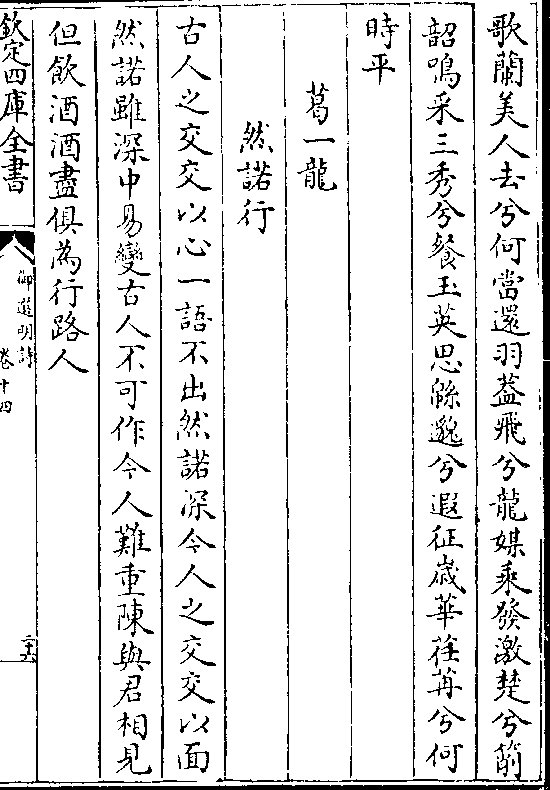 歌蘭美人去兮何當還羽葢飛兮龍媒乘發激楚兮簫
韶鳴采三秀兮餐玉英思緜邈兮遐征歲華荏苒兮何
時平
葛一龍
然諾行
古人之交交以心一語不出然諾深今人之交交以面
然諾雖深中易變古人不可作今人難重陳與君相見
但飲酒酒盡俱為行路人
欽定四庫全書
御選明詩
卷十四
二十六